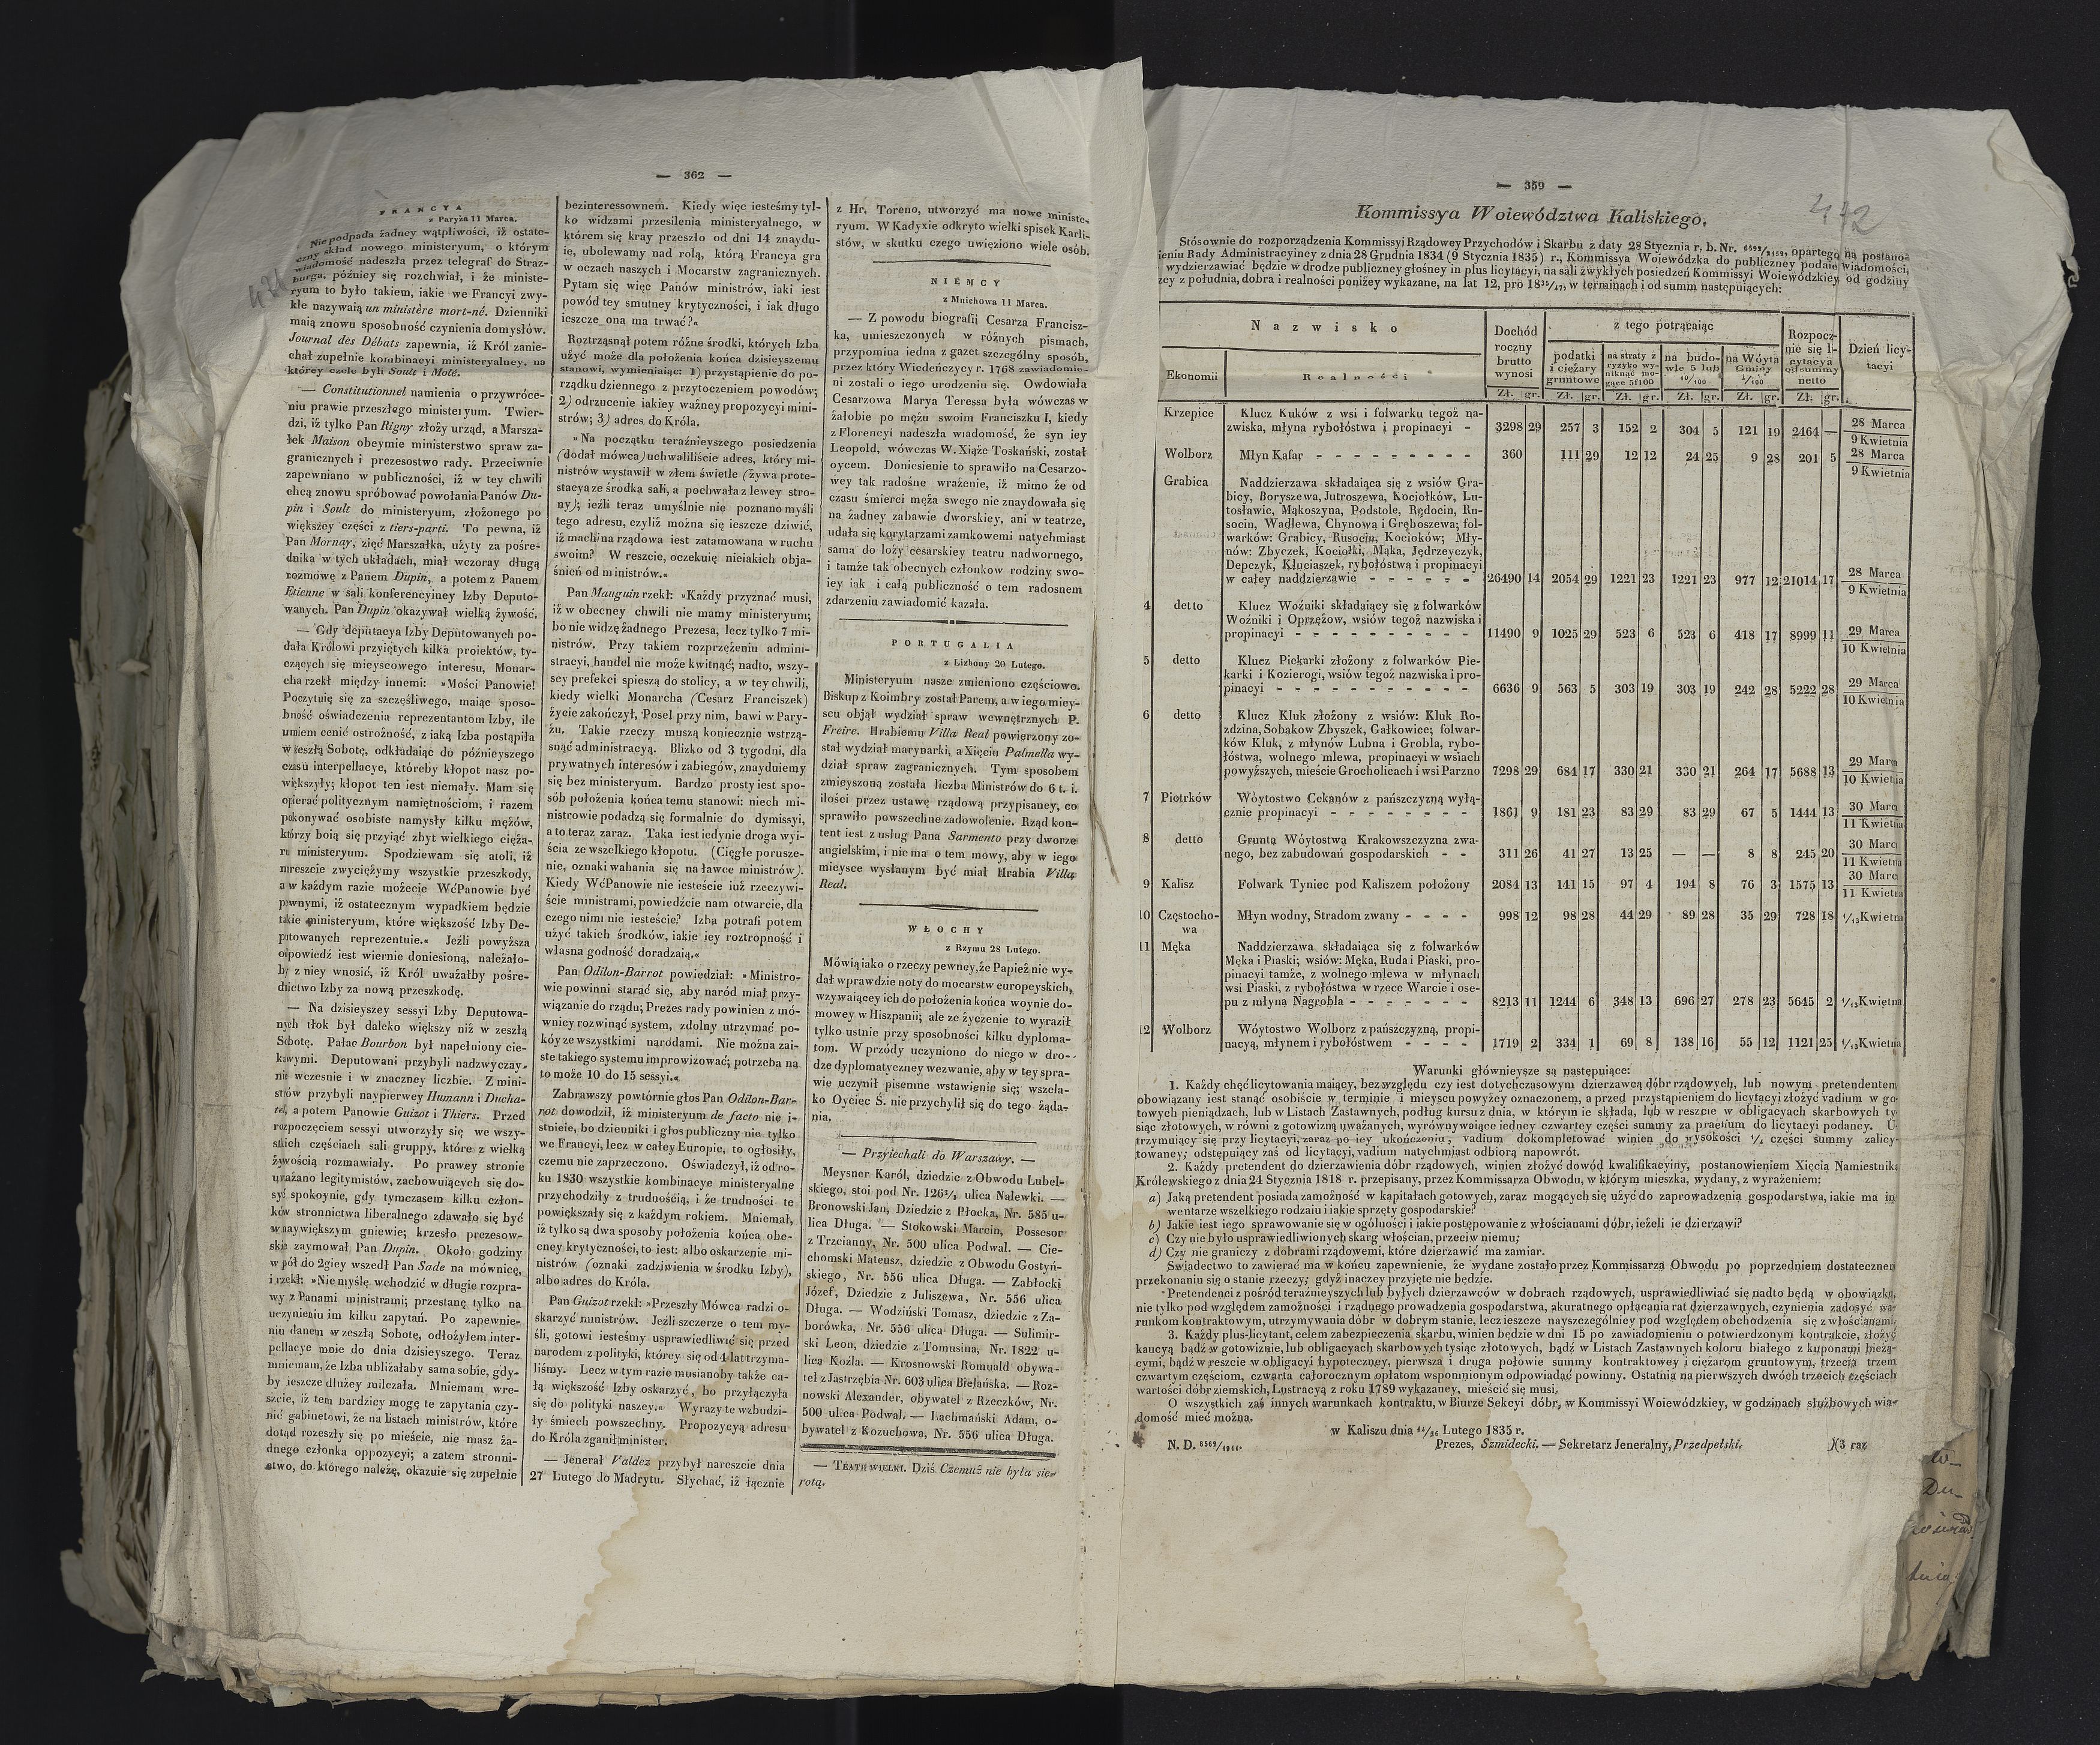 — 362 —
FRANCYA
z Paryża 11 Marca.
Nie podpada żadney wątpliwości, iż ostate-
czny skład nowego ministeryum, o którym
wiadomość nadeszła przez telegraf do Straz-
burga, późniey się rozchwiał, i że ministe-
ryum to było takiem, iakie we Francyi zwy-
kle nazywaią un ministère mort-né. Dzienniki
maią znowu sposobność czynienia domysłów.
Journal des Débats zapewnia, iż Król zanie-
chał zupełnie kombinacyi ministeryalney, na
którey czele byli Soult i Molé.
— Constitutionnel namienia o przywróce-
niu prawie przeszłego ministeryum. Twier-
dzi, iż tylko Pan Rigny złoży urząd, a Marsza-
łek Maison obeymie ministerstwo spraw za-
granicznych i prezesostwo rady. Przeciwnie
zapewniano w publiczności, iż w tey chwili
chcą znowu spróbować powołania Panów Du-
pin i Soult do ministeryum, złożonego po
większey części z tiers-parti. To pewna, iż
Pan Mornay, zięć Marszałka, użyty za pośre-
dnika w tych układach, miał wczoray długą
rozmowę z Panem Dupin, a potem z Panem
Etienne w sali konferencyiney Izby Deputo-
wanych. Pan Dupin okazywał wielką żywość.
— Gdy deputacya Izby Deputowanych po-
dała Królowi przyiętych kilka proiektów, ty-
czących się mieyscowego interesu, Monar-
cha rzekł między innemi: »Mości Panowie!
Poczytuię się za szczęśliwego, maiąc sposo-
bność oświadczenia reprezentantom Izby, ile
umiem cenić ostrożność, z iaką Izba postąpiła
w zeszłą Sobotę, odkładaiąc do późnieyszego
czasu interpellacye, któreby kłopot nasz po-
większyły; kłopot ten iest niemały. Mam się
opierać politycznym namiętnościom, i razem
pokonywać osobiste namysły kilku mężów,
którzy boią się przyiąć zbyt wielkiego cięża-
ru ministeryum. Spodziewam się atoli, iż
nareszcie zwyciężymy wszystkie przeszkody,
a w każdym razie możecie WćPanowie być
pewnymi, iż ostatecznym wypadkiem będzie
takie ministeryum, które większość Izby De-
putowanych reprezentuie.« Jeźli powyższa
odpowiedź iest wiernie doniesioną, należało-
by z niey wnosić, iż Król uważałby pośre-
dnictwo Izby za nową przeszkodę.
— Na dzisieyszey sessyi Izby Deputowa-
nych tłok był daleko większy niż w zeszłą
Sobotę. Pałac Bourbon był napełniony cie-
kawymi. Deputowani przybyli nadzwyczay-
nie wczesnie i w znaczney liczbie. Z mini-
strów przybyli naypierwey Humann i Ducha-
tel, a potem Panowie Guizot i Thiers. Przed
rozpoczęciem sessyi utworzyły się we wszy-
stkich częściach sali gruppy, które z wielką
żywością rozmawiały. Po prawey stronie
uważano legitymistów, zachowuiących się do-
syć spokoynie, gdy tymczasem kilku człon-
ków stronnictwa liberalnego zdawało się być
w naywiększym gniewie; krzesło prezesow-
skie zaymował Pan Dupin. Około godziny
w pół do 2giey wszedł Pan Sade na mównicę,
i rzekł: »Nie myślę wchodzić w długie rozpra-
wy z Panami ministrami; przestanę tylko na
uczynieniu im kilku zapytań. Po zapewnie-
niu danem w zeszłą Sobotę, odłożyłem inter-
pellacye moie do dnia dzisieyszego. Teraz
mniemam, że Izba ubliżałaby sama sobie, gdy-
by ieszcze dłużey milczała. Mniemam wre-
szcie, iż tem bardziey mogę te zapytania czy-
nić gabinetowi, że na listach ministrów, które
dotąd rozeszły się po mieście, nie masz ża-
dnego członka oppozycyi; a zatem stronni-
ctwo, do którego należę, okazuie się zupełnie
bezinteressownem. Kiedy więc iesteśmy tyl-
ko widzami przesilenia ministeryalnego, w
którem się kray przeszło od dni 14 znaydu-
ie, ubolewamy nad rolą, którą Francya gra
w oczach naszych i Mocarstw zagranicznych.
Pytam się więc Panów ministrów, iaki iest
powód tey smutney krytyczności, i iak długo
ieszcze ona ma trwać?«
Roztrząsnął potem różne środki, których Izba
użyć może dla położenia końca dzisieyszemu
stanowi, wymieniaiąc: 1) przystąpienie do po-
rządku dziennego z przytoczeniem powodów;
2) odrzucenie iakiey ważney propozycyi mini-
strów; 3) adres do Króla.
»Na początku teraźnieyszego posiedzenia
(dodał mówca) uchwaliliście adres, który mi-
nistrów wystawił w złem świetle (żywa prote-
stacya ze środka sali, a pochwała z lewey stro-
ny); ieźli teraz umyślnie nie poznano myśli
tego adresu, czyliż można się ieszcze dziwić,
iż machina rządowa iest zatamowana w ruchu
swoim? W reszcie, oczekuię nieiakich obja-
śnień od ministrów.«
Pan Mauguin rzekł: »Każdy przyznać musi,
iż w obecney chwili nie mamy ministeryum;
bo nie widzę żadnego Prezesa, lecz tylko 7 mi-
nistrów. Przy takiem rozprzężeniu admini-
stracyi, handel nie może kwitnąć; nadto, wszy-
scy prefekci spieszą do stolicy, a w tey chwili,
kiedy wielki Monarcha (Cesarz Franciszek)
życie zakończył, Poseł przy nim, bawi w Pary-
żu. Takie rzeczy muszą koniecznie wstrzą-
snąć administracyą. Blizko od 3 tygodni, dla
prywatnych interesów i zabiegów, znayduiemy
się bez ministeryum. Bardzo prosty iest spo-
sób położenia końca temu stanowi: niech mi-
nistrowie podadzą się formalnie do dymissyi,
a to teraz zaraz. Taka iest iedynie droga wyi-
ścia ze wszelkiego kłopotu. (Ciągłe porusze-
nie, oznaki wahania się na ławce ministrów).
Kiedy WćPanowie nie iesteście iuż rzeczywi-
ście ministrami, powiedźcie nam otwarcie, dla
czego nimi nie iesteście? Izba potrafi potem
użyć takich środków, iakie iey roztropność i
własna godność doradzaią.«
Pan Odilon-Barrot powiedział: »Ministro-
wie powinni starać się, aby naród miał przy-
wiązanie do rządu; Prezes rady powinien z mó-
wnicy rozwinąć system, zdolny utrzymać po-
kóy ze wszystkimi narodami. Nie można zai-
ste takiego systemu improwizować; potrzeba na
to może 10 do 15 sessyi.«
Zabrawszy powtórnie głos Pan Odilon-Bar-
rot dowodził, iż ministeryum de facto nie i-
stnieie, bo dzienniki i głos publiczny nie tylko
we Francyi, lecz w całey Europie, to ogłosiły,
czemu nie zaprzeczono. Oświadczył, iż od ro-
ku 1830 wszystkie kombinacye ministeryalne
przychodziły z trudnością, i że trudności te
powiększały się z każdym rokiem. Mniemał,
iż tylko są dwa sposoby położenia końca obe-
cney krytyczności, to iest: albo oskarżenie mi-
nistrów (oznaki zadziwienia w środku Izby),
albo adres do Króla.
Pan Guizot rzekł: »Przeszły Mówca radzi o-
skarżyć ministrów. Jeźli szczerze o tem my-
śli, gotowi iesteśmy usprawiedliwić się przed
narodem z polityki, którey się od 4 lat trzyma-
liśmy. Lecz w tym razie musianoby także ca-
łą większość Izby oskarżyć, bo przyłączyła
się do polityki naszey.« Wyrazy te wzbudzi-
ły śmiech powszechny. Propozycyą adresu
do Króla zganił minister.
— Jenerał Valdez przybył nareszcie dnia
27 Lutego do Madrytu. Słychać, iż łącznie
z Hr. Toreno, utworzyć ma nowe ministe-
ryum. W Kadyxie odkryto wielki spisek Karli-
stów, w skutku czego uwięziono wiele osób.
NIEMCY
z Mnichowa 11 Marca.
— Z powodu biografii Cesarza Francisz-
ka, umieszczonych w różnych pismach,
przypomina iedna z gazet szczególny sposób,
przez który Wiedeńczycy r. 1768 zawiadomie-
ni zostali o iego urodzeniu się. Owdowiała
Cesarzowa Marya Teressa była wówczas w
żałobie po mężu swoim Franciszku I, kiedy
z Florencyi nadeszła wiadomość, że syn iey
Leopold, wówczas W. Xiąże Toskański, został
oycem. Doniesienie to sprawiło na Cesarzo-
wey tak radośne wrażenie, iż mimo że od
czasu śmierci męża swego nie znaydowała się
na żadney zabawie dworskiey, ani w teatrze,
udała się korytarzami zamkowemi natychmiast
sama do loży cesarskiey teatru nadwornego,
i tamże tak obecnych członkow rodziny swo-
iey iak i całą publiczność o tem radosnem
zdarzeniu zawiadomić kazała.
PORTUGALIA
z Lizbony 20 Lutego.
Ministeryum nasze zmieniono częściowo.
Biskup z Koimbry został Parem, a w iego miey-
scu objął wydział spraw wewnętrznych P.
Freire. Hrabiemu Villa Real powierzony zo-
stał wydział marynarki, a Xięciu Palmella wy-
dział spraw zagranicznych. Tym sposobem
zmieyszoną została liczba Ministrów do 6 t. i.
ilości przez ustawę rządową przypisaney, co
sprawiło powszechne zadowolenie. Rząd kon-
tent iest z usług Pana Sarmento przy dworze
angielskim, i nie ma o tem mowy, aby w iego
mieysce wysłanym być miał Hrabia Villa
Real.
WŁOCHY
z Rzymu 28 Lutego.
Mówią iako o rzeczy pewney, że Papież nie wy-
dał wprawdzie noty do mocarstw europeyskich,
wzywaiącey ich do położenia końca woynie do-
mowey w Hiszpanii; ale ze życzenie to wyraził
tylko ustnie przy sposobności kilku dyploma-
tom. W przódy uczyniono do niego w dro-
dze dyplomatyczney wezwanie, aby w tey spra-
wie uczynił pisemne wstawienie się; wszela-
ko Oyciec Ś. nie przychylił się do tego żąda-
nia.
— Przyiechali do Warszawy. —
Meysner Karól, dziedzic z Obwodu Lubel-
skiego, stoi pod Nr. 126½ ulica Nalewki. —
Bronowski Jan, Dziedzic z Płocka, Nr. 585 u-
lica Długa. — Stokowski Marcin, Possesor
z Trzcianny, Nr. 500 ulica Podwal. — Cie-
chomski Mateusz, dziedzic z Obwodu Gostyń-
skiego, Nr. 556 ulica Długa. — Zabłocki
Józef, Dziedzic z Juliszewa, Nr. 556 ulica
Długa. — Wodziński Tomasz, dziedzic z Za-
borówka, Nr. 556 ulica Długa. — Sulimir-
ski Leon, dziedzic z Tomusina, Nr. 1822 u-
lica Koźla. — Krosnowski Romuald obywa-
tel z Jastrzębia Nr. 603 ulica Bielańska. — Roz-
nowski Alexander, obywatel z Rzeczków, Nr.
500 ulica Podwal. — Lachmański Adam, o-
bywatel z Kozuchowa, Nr. 556 ulica Długa.
— TEATR WIELKI. Dziś Czemuż nie była sie-
rotą.
— 359 —
472
Kommissya Woiewództwa Kaliskiego.
Stósownie do rozporządzenia Kommissyi Rządowey Przychodów i Skarbu z daty 28 Stycznia r. b. Nr. opartego na postano-
ieniu Rady Administracyiney z dnia 28 Grudnia 1834 (9 Stycznia 1835) r., Kommissya Woiewódzka do publiczney podaie wiadomości,
wydzierzawiać będzie w drodze publiczney głośney in plus licytacyi, na sali zwykłych posiedzeń Kommissyi Woiewódzkiey, od godziny
zey z południa, dobra i realności poniżey wykazane, na lat 12, pro 18³⁵/₄₇, w terminach i od summ następuiących:
Nazwisko | Dochód roczny brutto wynosi | z tego potrącaiąc | Rozpocz-nie się li-cytacya od summy netto | Dzień licy-tacyi
Ekonomii | Realności | podatki i ciężary gruntowe | na straty z ryzyko wy-niknąć mo-gące 5f100 | na budo-wle 5 lub 10/100 | na Wóyta Gminy ¹/₁₀₀
Zł. gr. | Zł. gr. | Zł. gr. | Zł. gr. | Zł. gr. | Zł. gr.
Krzepice | Klucz Kuków z wsi i folwarku tegoż na-
zwiska, młyna rybołóstwa i propinacyi - | 3298 29 | 257 3 | 152 2 | 304 5 | 121 19 | 2464 — | 28 Marca / 9 Kwietnia
Wolborz | Młyn Kafar - - - - - - - - - | 360 | 111 29 | 12 12 | 24 25 | 9 28 | 201 5 | 28 Marca / 9 Kwietnia
Grabica | Naddzierzawa składaiąca się z wsiów Gra-
bicy, Boryszewa, Jutroszewa, Kociołków, Lu-
tosławic, Mąkoszyna, Podstole, Rędocin, Ru-
socin, Wadlewa, Chynowa i Gręboszewa; fol-
warków: Grabicy, Rusocin, Kocioków; Mły-
nów: Zbyczek, Kociołki, Mąka, Jędrzeyczyk,
Depczyk, Kłuciaszek, rybołóstwa i propinacyi
w całey naddzierzawie - - - - - - | 26490 14 | 2054 29 | 1221 23 | 1221 23 | 977 12 | 21014 17 | 28 Marca / 9 Kwietnia
4 | detto | Klucz Woźniki składaiący się z folwarków
Woźniki i Oprzężow, wsiów tegoż nazwiska i
propinacyi - - - - - - - - - - | 11490 9 | 1025 29 | 523 6 | 523 6 | 418 17 | 8999 11 | 29 Marca / 10 Kwietnia
5 | detto | Klucz Piekarki złożony z folwarków Pie-
karki i Kozierogi, wsiów tegoż nazwiska i pro-
pinacyi - - - - - - - - - - - | 6636 9 | 563 5 | 303 19 | 303 19 | 242 28 | 5222 28 | 29 Marca / 10 Kwietnia
6 | detto | Klucz Kluk złożony z wsiów: Kluk Ro-
zdzina, Sobakow Zbyszek, Gałkowice; folwar-
ków Kluk, z młynów Lubna i Grobla, rybo-
łóstwa, wolnego mlewa, propinacyi w wsiach
powyższych, mieście Grocholicach i wsi Parzno | 7298 29 | 684 17 | 330 21 | 330 21 | 264 17 | 5688 13 | 29 Marca / 10 Kwietnia
7 | Piotrków | Wóytostwo Cekanów z pańszczyzną wyłą-
cznie propinacyi - - - - - - - - | 1861 9 | 181 23 | 83 29 | 83 29 | 67 5 | 1444 13 | 30 Marc / 11 Kwietnia
8 | detto | Grunta Wóytostwa Krakowszczyzna zwa-
nego, bez zabudowań gospodarskich - - | 311 26 | 41 27 | 13 25 | — — | 8 8 | 245 20 | 30 Marc / 11 Kwietnia
9 | Kalisz | Folwark Tyniec pod Kaliszem położony | 2084 13 | 141 15 | 97 4 | 194 8 | 76 3 | 1575 13 | 30 Marc / 11 Kwietnia
10 | Częstocho-wa | Młyn wodny, Stradom zwany - - - - | 998 12 | 98 28 | 44 29 | 89 28 | 35 29 | 728 18 | ¹/₁₃ Kwietna
11 | Męka | Naddzierzawa składaiąca się z folwarków
Męka i Piaski; wsiów: Męka, Ruda i Piaski, pro-
pinacyi tamże, z wolnego mlewa w młynach
wsi Piaski, z rybołóstwa w rzece Warcie i ose-
pu z młyna Nagrobla - - - - - - - | 8213 11 | 1244 6 | 348 13 | 696 27 | 278 23 | 5645 2 | ¹/₁₃ Kwietna
12 | Wolborz | Wóytostwo Wolborz z pańszczyzną, propi-
nacyą, młynem i rybołóstwem - - - - | 1719 2 | 334 1 | 69 8 | 138 16 | 55 12 | 1121 25 | ¹/₁₃ Kwietna
Warunki głównieysze są następuiące:
1. Każdy chęć licytowania maiący, bez względu czy iest dotychczasowym dzierzawcą dóbr rządowych, lub nowym pretendentem
obowiązany iest stanąć osobiście w terminie i mieyscu powyżey oznaczonem, a przed przystąpieniem do licytacyi złożyć vadium w go
towych pieniądzach, lub w Listach Zastawnych, podług kursu z dnia, w którym ie składa, lub w reszcie w obligacyach skarbowych ty
siąc złotowych, w równi z gotowizną uważanych, wyrównywaiące iedney czwartey części summy za praetium do licytacyi podaney. U
trzymuiący się przy licytacyi, zaraz po iey ukończeniu, vadium dokompletować winien do wysokości ¼ części summy zalicy-
towaney; odstępuiący zaś od licytacyi, vadium natychmiast odbiorą napowrót.
2. Każdy pretendent do dzierzawienia dóbr rządowych, winien złożyć dowód kwalifikacyiny, postanowieniem Xięcia Namiestnika
Królewskiego z dnia 24 Stycznia 1818 r. przepisany, przez Kommissarza Obwodu, w którym mieszka, wydany, z wyrażeniem:
a) Jaką pretendent posiada zamożność w kapitałach gotowych, zaraz mogących się użyć do zaprowadzenia gospodarstwa, iakie ma in
wentarze wszelkiego rodzaiu i iakie sprzęty gospodarskie?
b) Jakie iest iego sprawowanie się w ogólności i iakie postępowanie z włościanami dóbr, ieżeli ie dzierzawi?
c) Czy nie było usprawiedliwionych skarg włościan, przeciw niemu;
d) Czy nie graniczy z dobrami rządowemi, które dzierzawić ma zamiar.
Swiadectwo to zawierać ma w końcu zapewnienie, że wydane zostało przez Kommissarza Obwodu po poprzedniem dostatecznem
przekonaniu się o stanie rzeczy; gdyż inaczey przyięte nie będzie.
Pretendenci z pośród teraźnieyszych lub byłych dzierzawców w dobrach rządowych, usprawiedliwiać się nadto będą w obowiązku,
nie tylko pod względem zamożności i rządnego prowadzenia gospodarstwa, akuratnego opłącania rat dzierzawnych, czynienia zadosyć wa-
runkom kontraktowym, utrzymywania dóbr w dobrym stanie, lecz ieszcze nayszczególniey pod względem obchodzenia się z włościanami.
3. Każdy plus-licytant, celem zabezpieczenia skarbu, winien będzie w dni 15 po zawiadomieniu o potwierdzonym kontrakcie, złożyć
kaucyą bądź w gotowiznie, lub obligacyach skarbowych tysiąc złotowych, bądź w Listach Zastawnych koloru białego z kuponami bieżą-
cymi, bądź w reszcie w obligacyi hypoteczney, pierwsza i druga połowie summy kontraktowey i ciężarom gruntowym, trzecia trzem
czwartym częściom, czwarta całorocznym opłatom wspomnionym odpowiadać powinny. Ostatnia na pierwszych dwóch trzecich częściach
wartości dóbr ziemskich, Lustracyą z roku 1789 wykazaney, mieścić się musi.
O wszystkich zaś innych warunkach kontraktu, w Biurze Sekcyi dóbr, w Kommissyi Woiewódzkiey, w godzinach służbowych wia-
domość mieć można.
w Kaliszu dnia Lutego 1835 r.
N. D. Prezes, Szmidecki. — Sekretarz Jeneralny, Przedpełski. )(3 raz